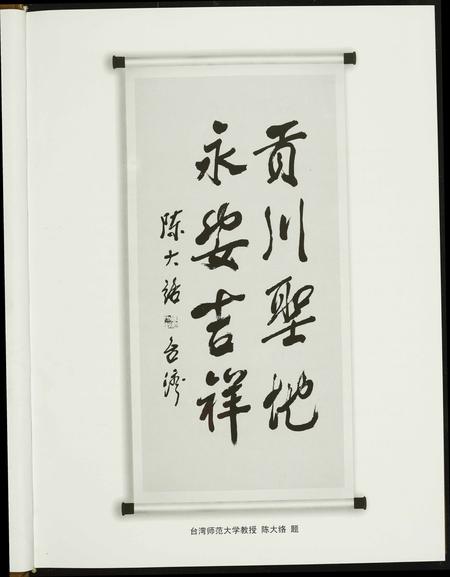 贡川聖地
永安吉祥
陈大络
台湾
台湾师范大学教授 陈大络 题